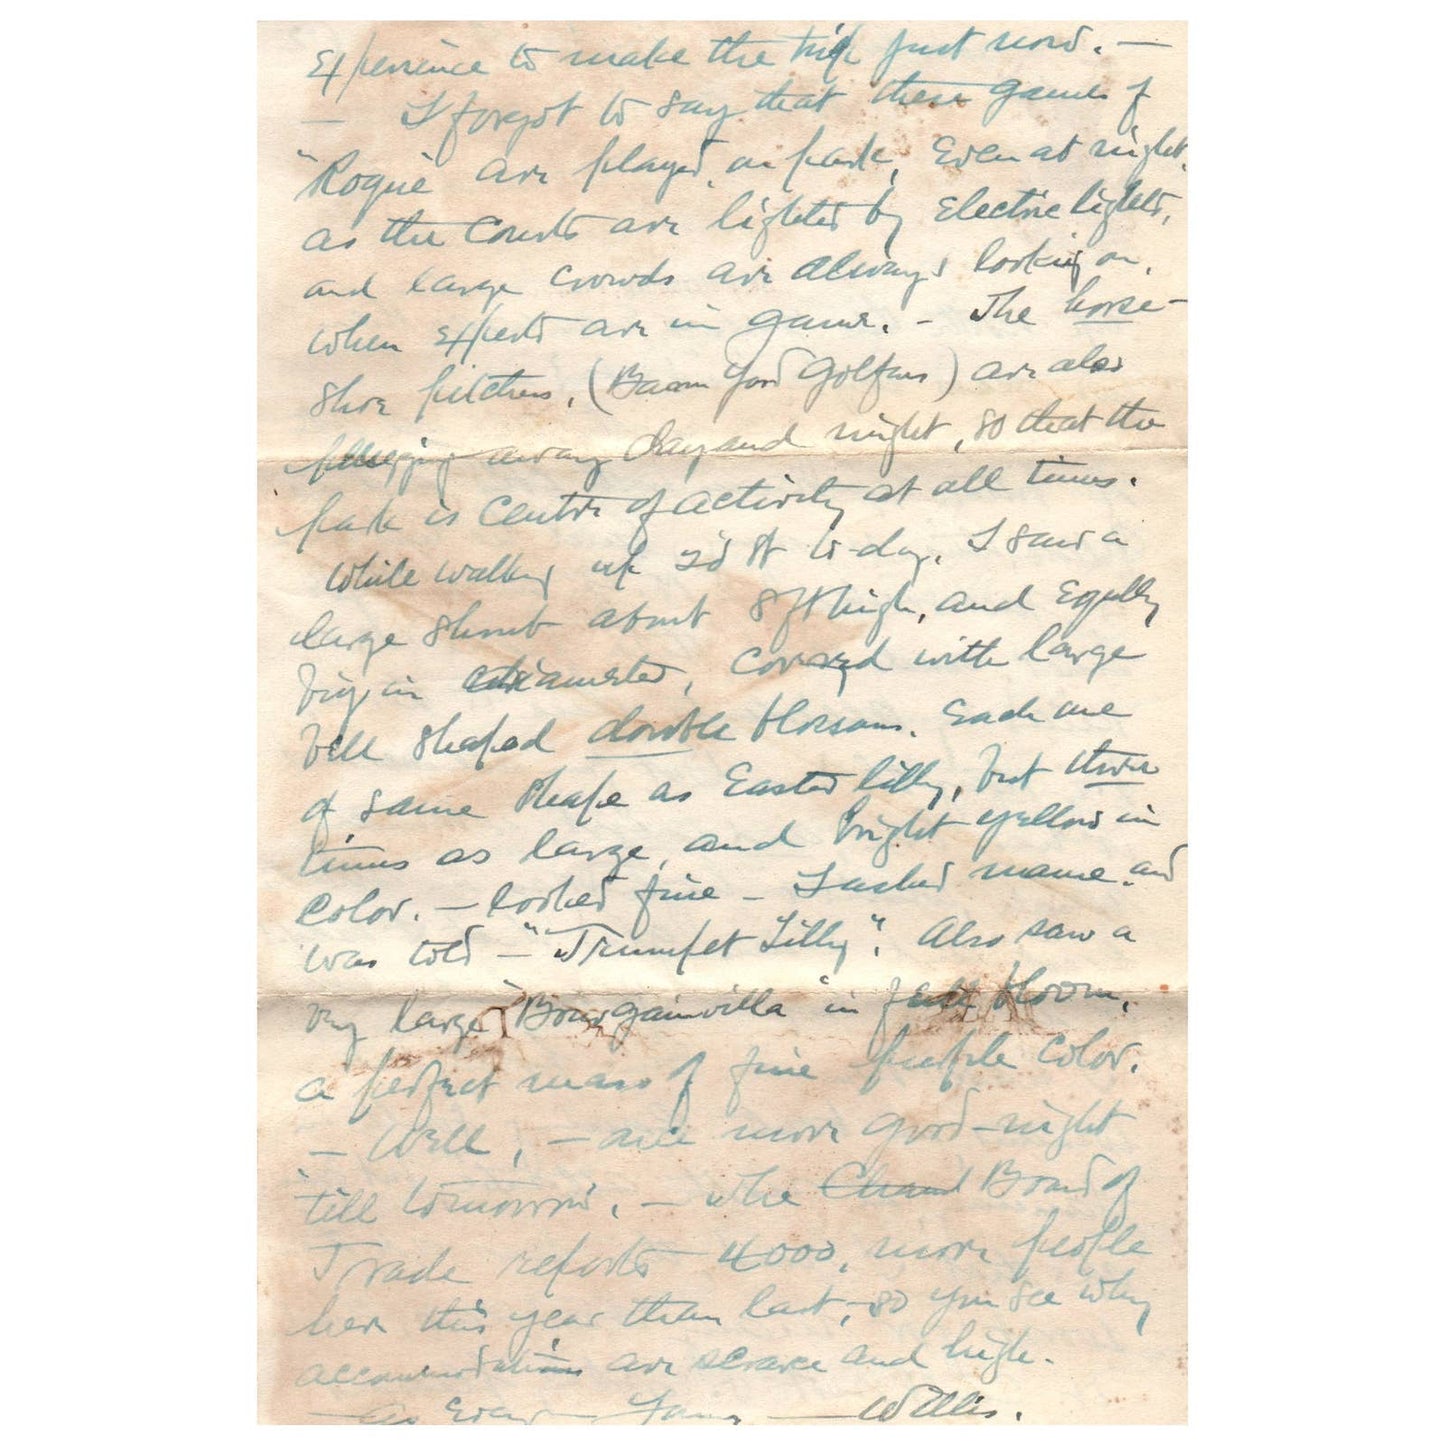 Experience to make the trip just now. —
— I forgot to say that these games of
"Roque" are played, on park, Even at night,
as the Courts are lighted by Electric lights,
and large crowds are always looking on,
when experts are in game. — The horse-
shoe pitchers, (Barn Yard Golfers) are also
away day and night, so that the
park is Centre of activity at all times.
While walking up 2d St to-day, I saw a
large shrub about 8 ft high, and Equally
big in diameter, covered with large
bell shaped double blossoms. Each one
of same shape as Easter lilly, but three
times as large, and bright yellow in
Color. — looked fine — I asked name and
was told — "Trumpet Lilly". Also saw a
very large "Bourgainvilla" in full bloom,
a perfect mass of fine purple Color.
— Well, — once more good-night
'till tomorrow. — The Chamd Board of
Trade reports 4000, more people
here this year than last, — so you see why
accommodations are scarce and high.
— As Ever — Yours — Willis.